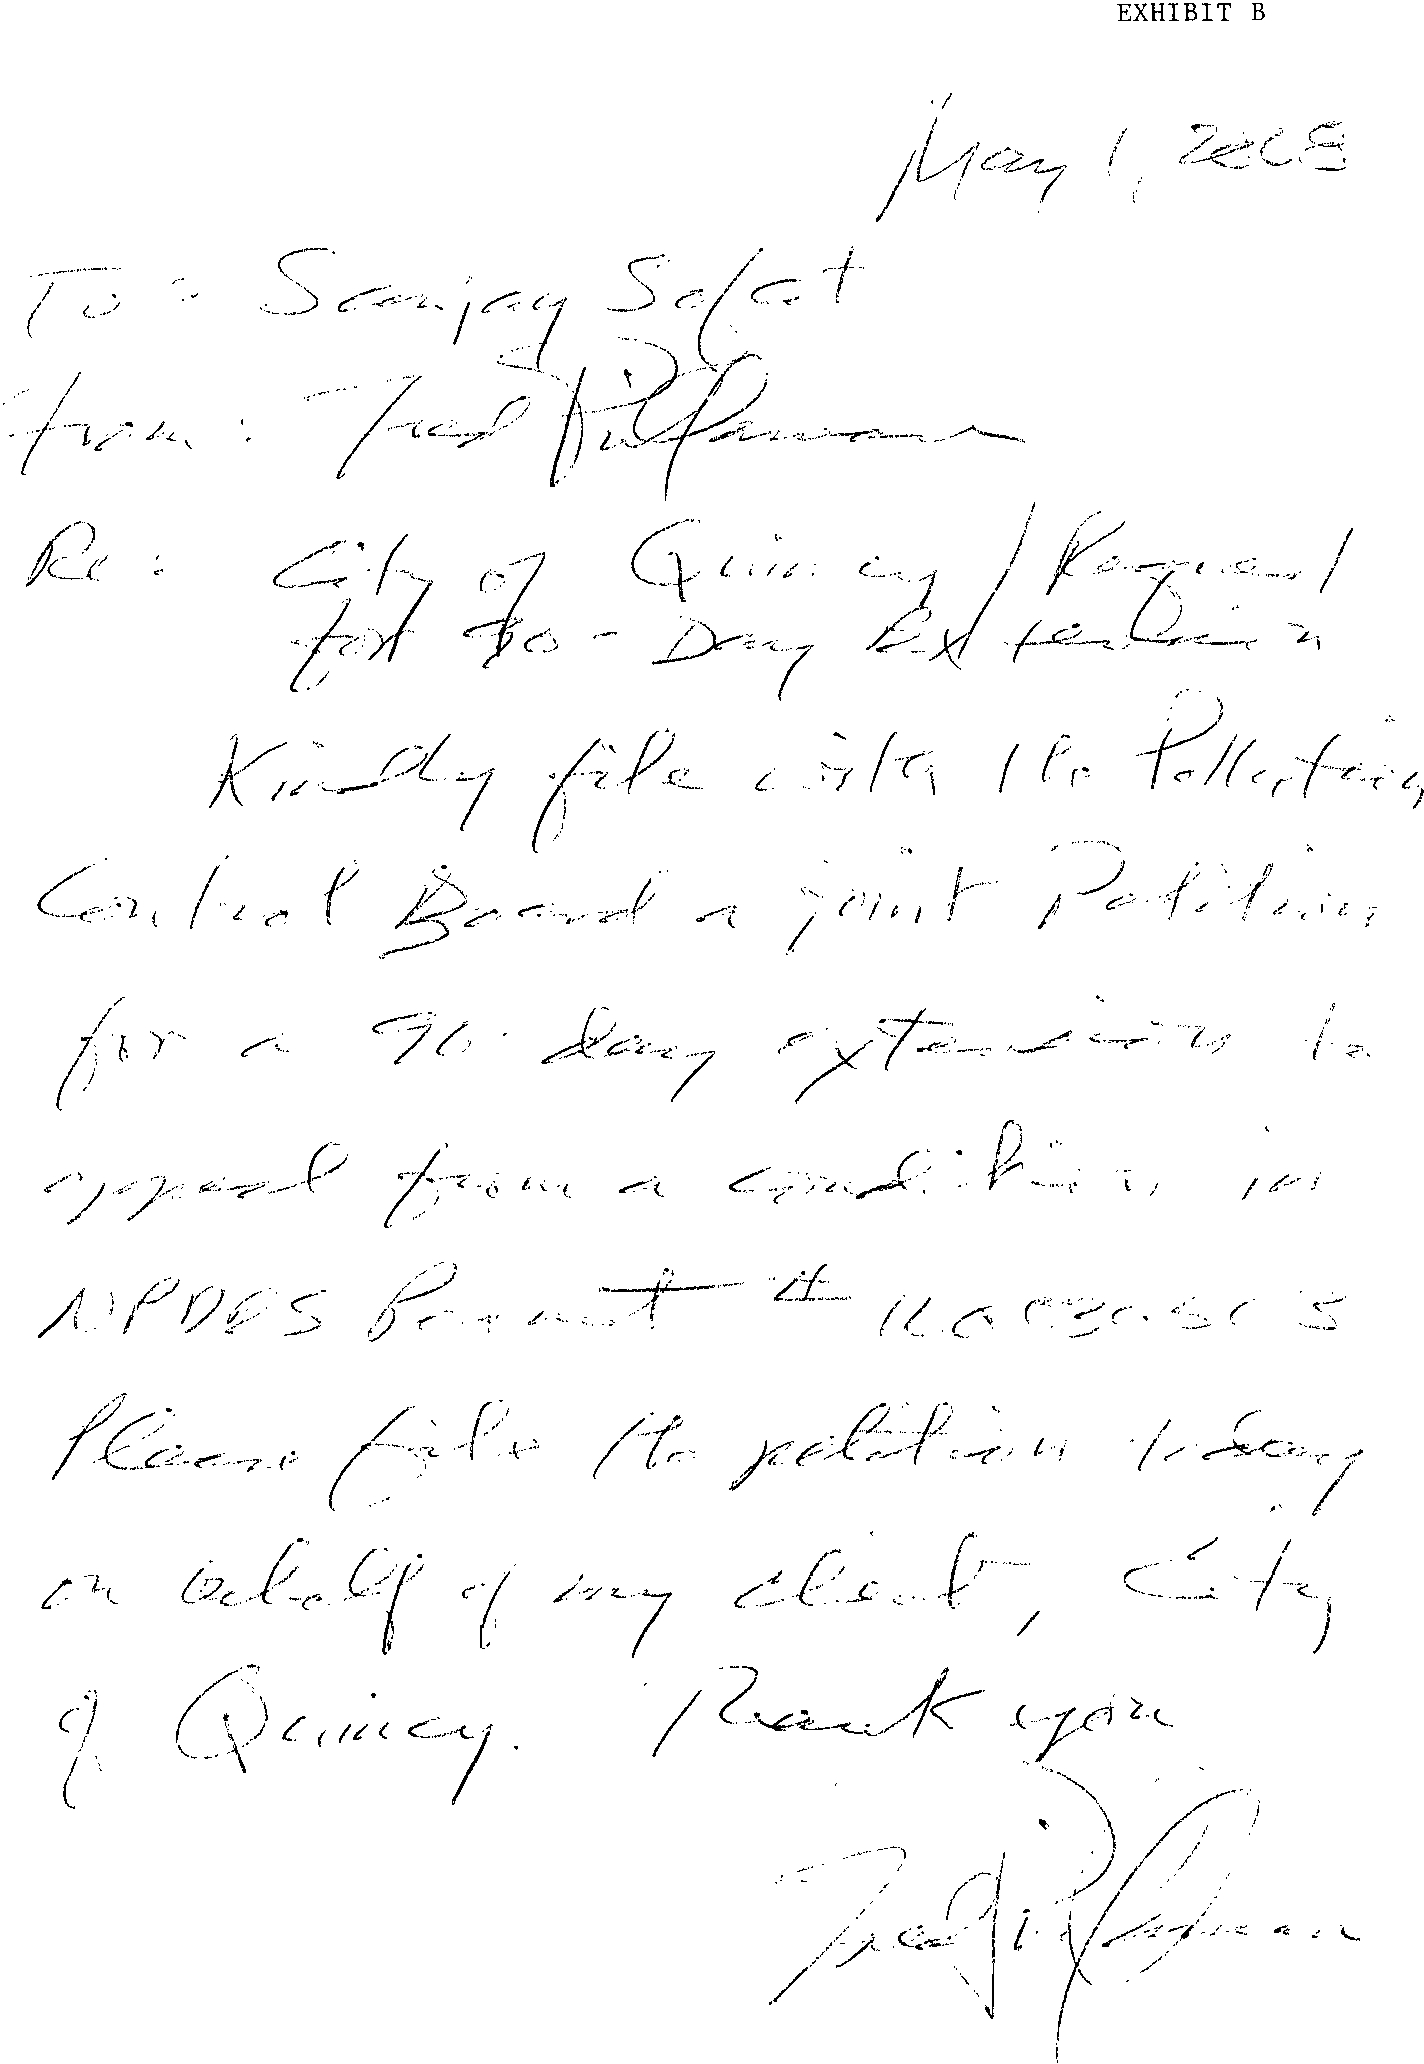 EXHIBIT B
May 1, 2008
To: Sanjay Sofat
From: Fred
Re: City of Quincy / Request
for 90-Day Extension
Kindly file with the Pollution
Control Board a joint Petition
for a 90-day extension to
appeal from a condition in
NPDES Permit #
Please file the petition today
on behalf of my client, City
of Quincy. Thank you
Fred